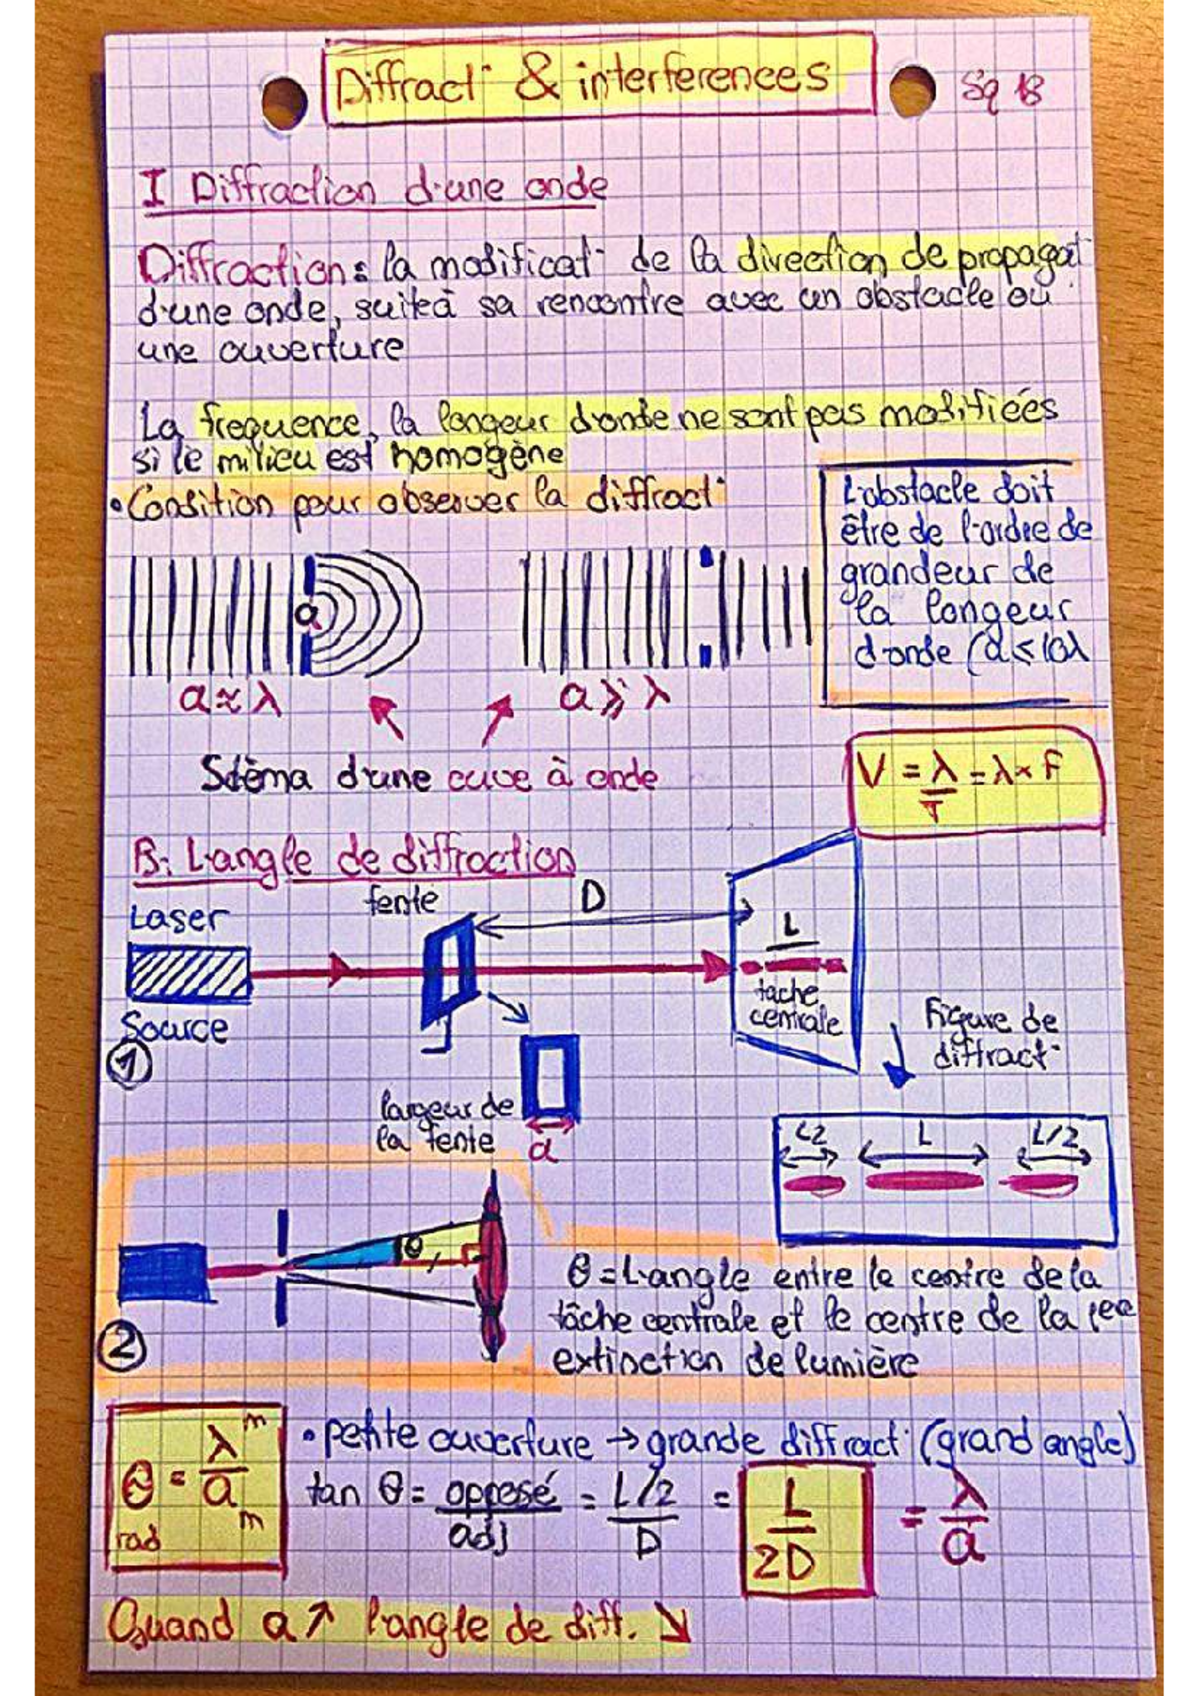 Diffract° & interferences
Sq 18
I Diffraction d'une onde
Diffraction: la modificat° de la direction de propagat°
d'une onde, suite à sa rencontre avec un obstacle ou
une ouverture
La frequence, la longeur d'onde ne sont pas modifiées
si le milieu est homogène
• Condition pour observer la diffract°
L'obstacle doit
être de l'ordre de
grandeur de
la longeur
d'onde (a<10λ
a
a ≈ λ
a ≫ λ
Scéma d'une cuve à onde
V = λ/T = λ × F
B: L'angle de diffraction
Laser
fente
D
L
tache
centrale
Source
1
Figure de
diffract°
largeur de
la fente
a
L2
L
L/2
θ
2
θ = L'angle entre le centre de la
tâche centrale et le centre de la 1ère
extinction de lumière
θ = λ/a
m
m
rad
• petite ouverture → grande diffract° (grand angle)
tan θ = opposé/adj = L/2/D = L/2D = λ/a
Quand a ↗ l'angle de diff. ↘